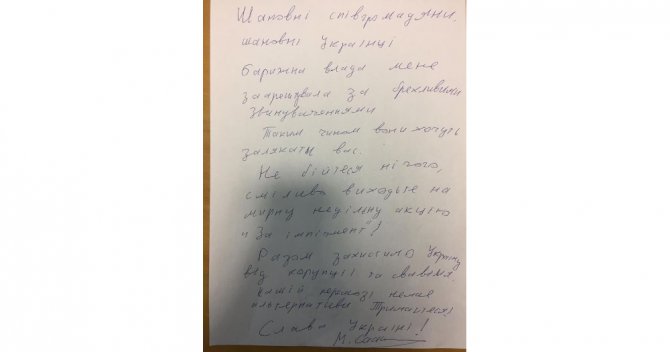 Шановні співгромадяни,
шановні Українці
барижна влада мене
заарештувала за брехливими
звинуваченнями
Таким чином вони хочуть
залякати вас.
Не бійтеся нічого,
сміливо виходьте на
мирну недільну акцію
"За імпічмент"!
Разом захистимо Україну
від корупції та свавілля.
нашій перемозі немає
альтернативи Тримайтеся!
Слава Україні!
М. Саак